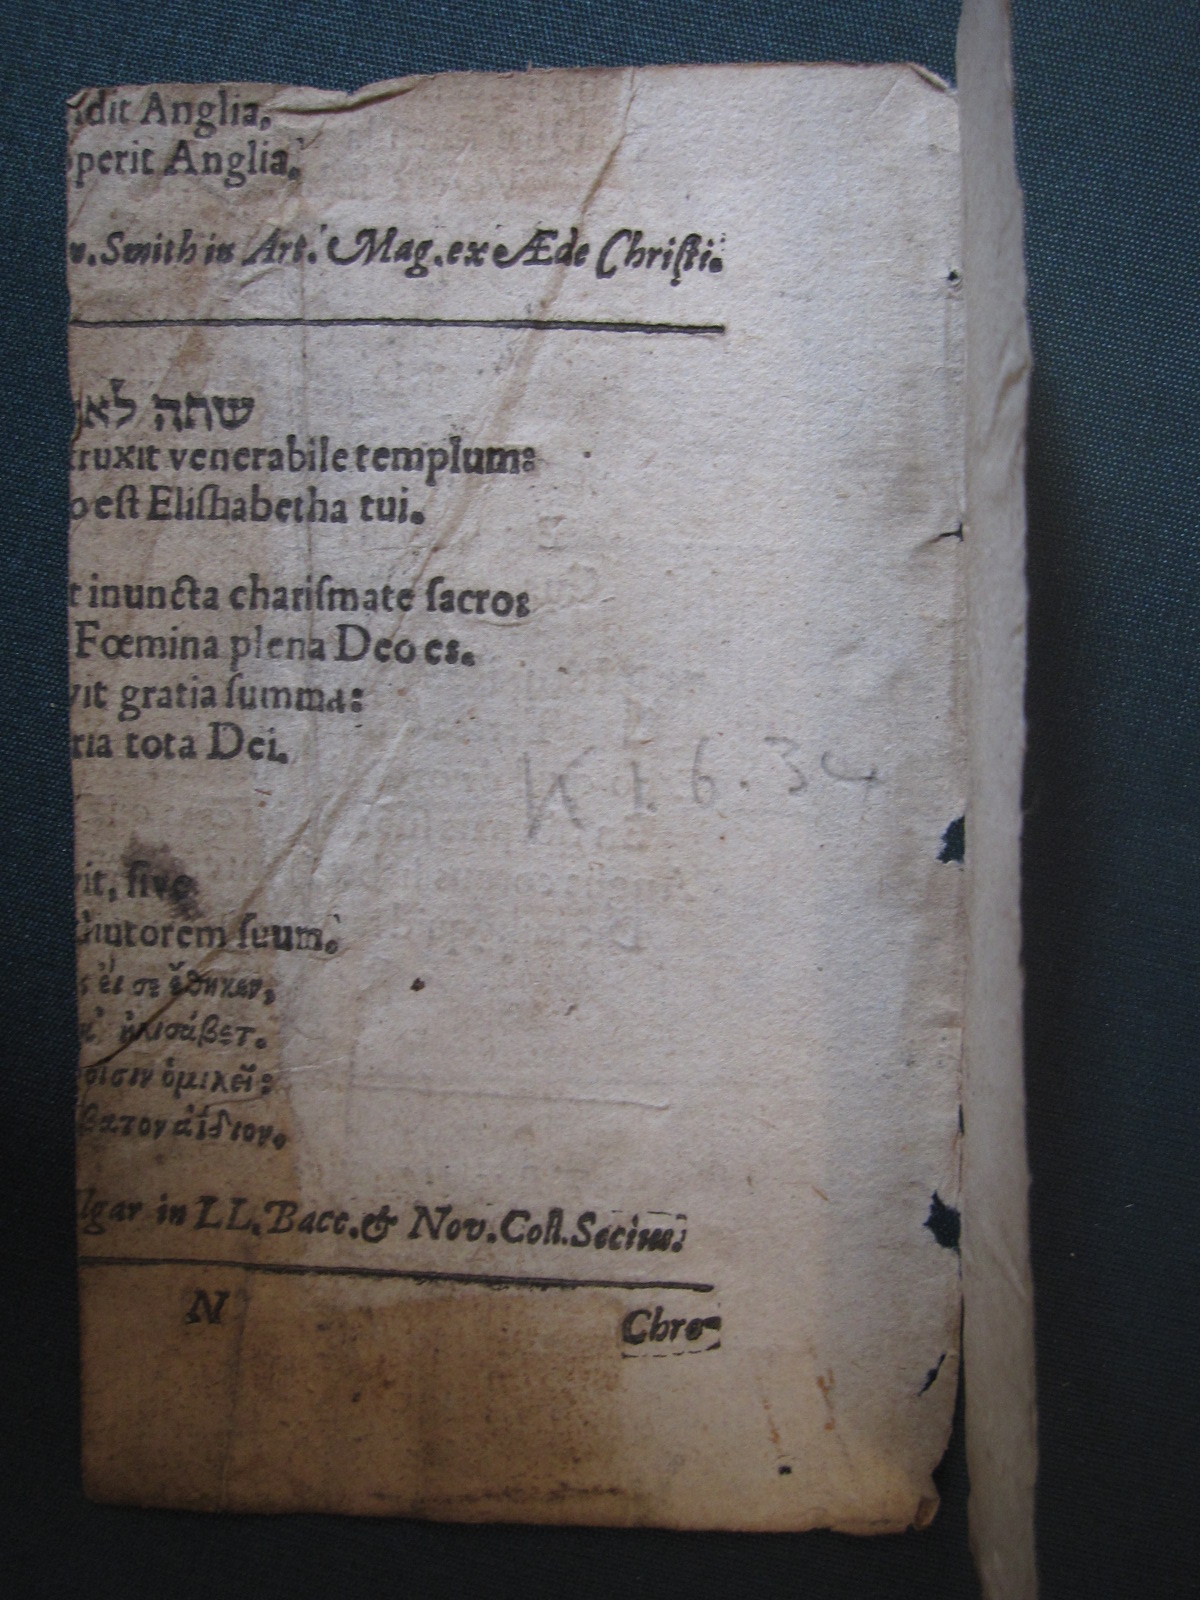 dit Anglia.
perit Anglia.
Smith in Art. Mag. ex Æde Chriſti.
שתה לא
truxit venerabile templum:
o eſt Eliſhabetha tui.
t inuncta chariſmate ſacro:
Fœmina plena Deo es.
vit gratia ſumma:
ria tota Dei.
K 1. 6. 34
rit, ſive
utorem ſuum.
ς εἰ σε ἔθηκεν,
ἠλισάβετ.
οισιν ὁμιλεῖ:
βατον ἀΐδιον.
lgar in LL. Bacc. & Nov. Coll. Socius.
N
Chro-